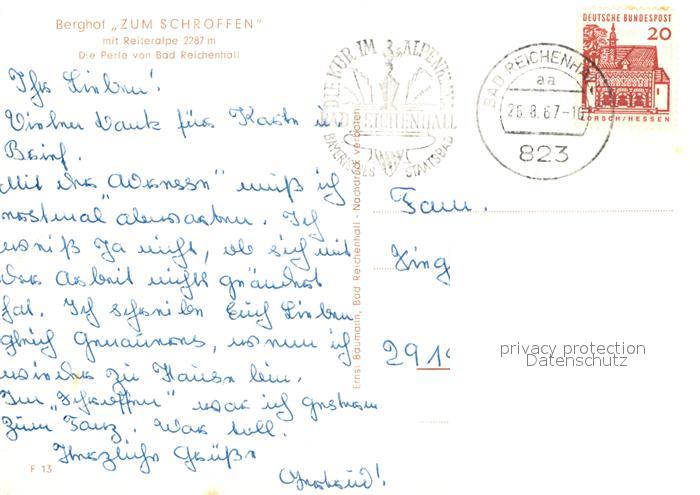 Berghof „ZUM SCHROFFEN"
mit Reiteralpe 2287 m
Die Perle von Bad Reichenhall
Ihr Lieben!
Vielen Dank für Karte u
Brief.
Mit der „Adresse" muß ich
erstmal abwarten. Ich
weiß ja nicht, ob sich mit
der Arbeit nichts geändert
hat. Ich schreibe Euch Lieben
gleich genaueres, wenn ich
wieder zu Hause bin.
Im „Schroffen" war ich gestern
zum Tanz. War toll.
Herzliche Grüße
F 13
Ernst Baumann, Bad Reichenhall - Nachdruck verboten
DIE KUR IM ALPENKLIMA
BAD REICHENHALL
BAYERISCHES STAATSBAD
BAD REICHENHALL
aa
26.8.67-16
823
DEUTSCHE BUNDESPOST
20
LORSCH/HESSEN
Fam.
291
privacy protection
Datenschutz